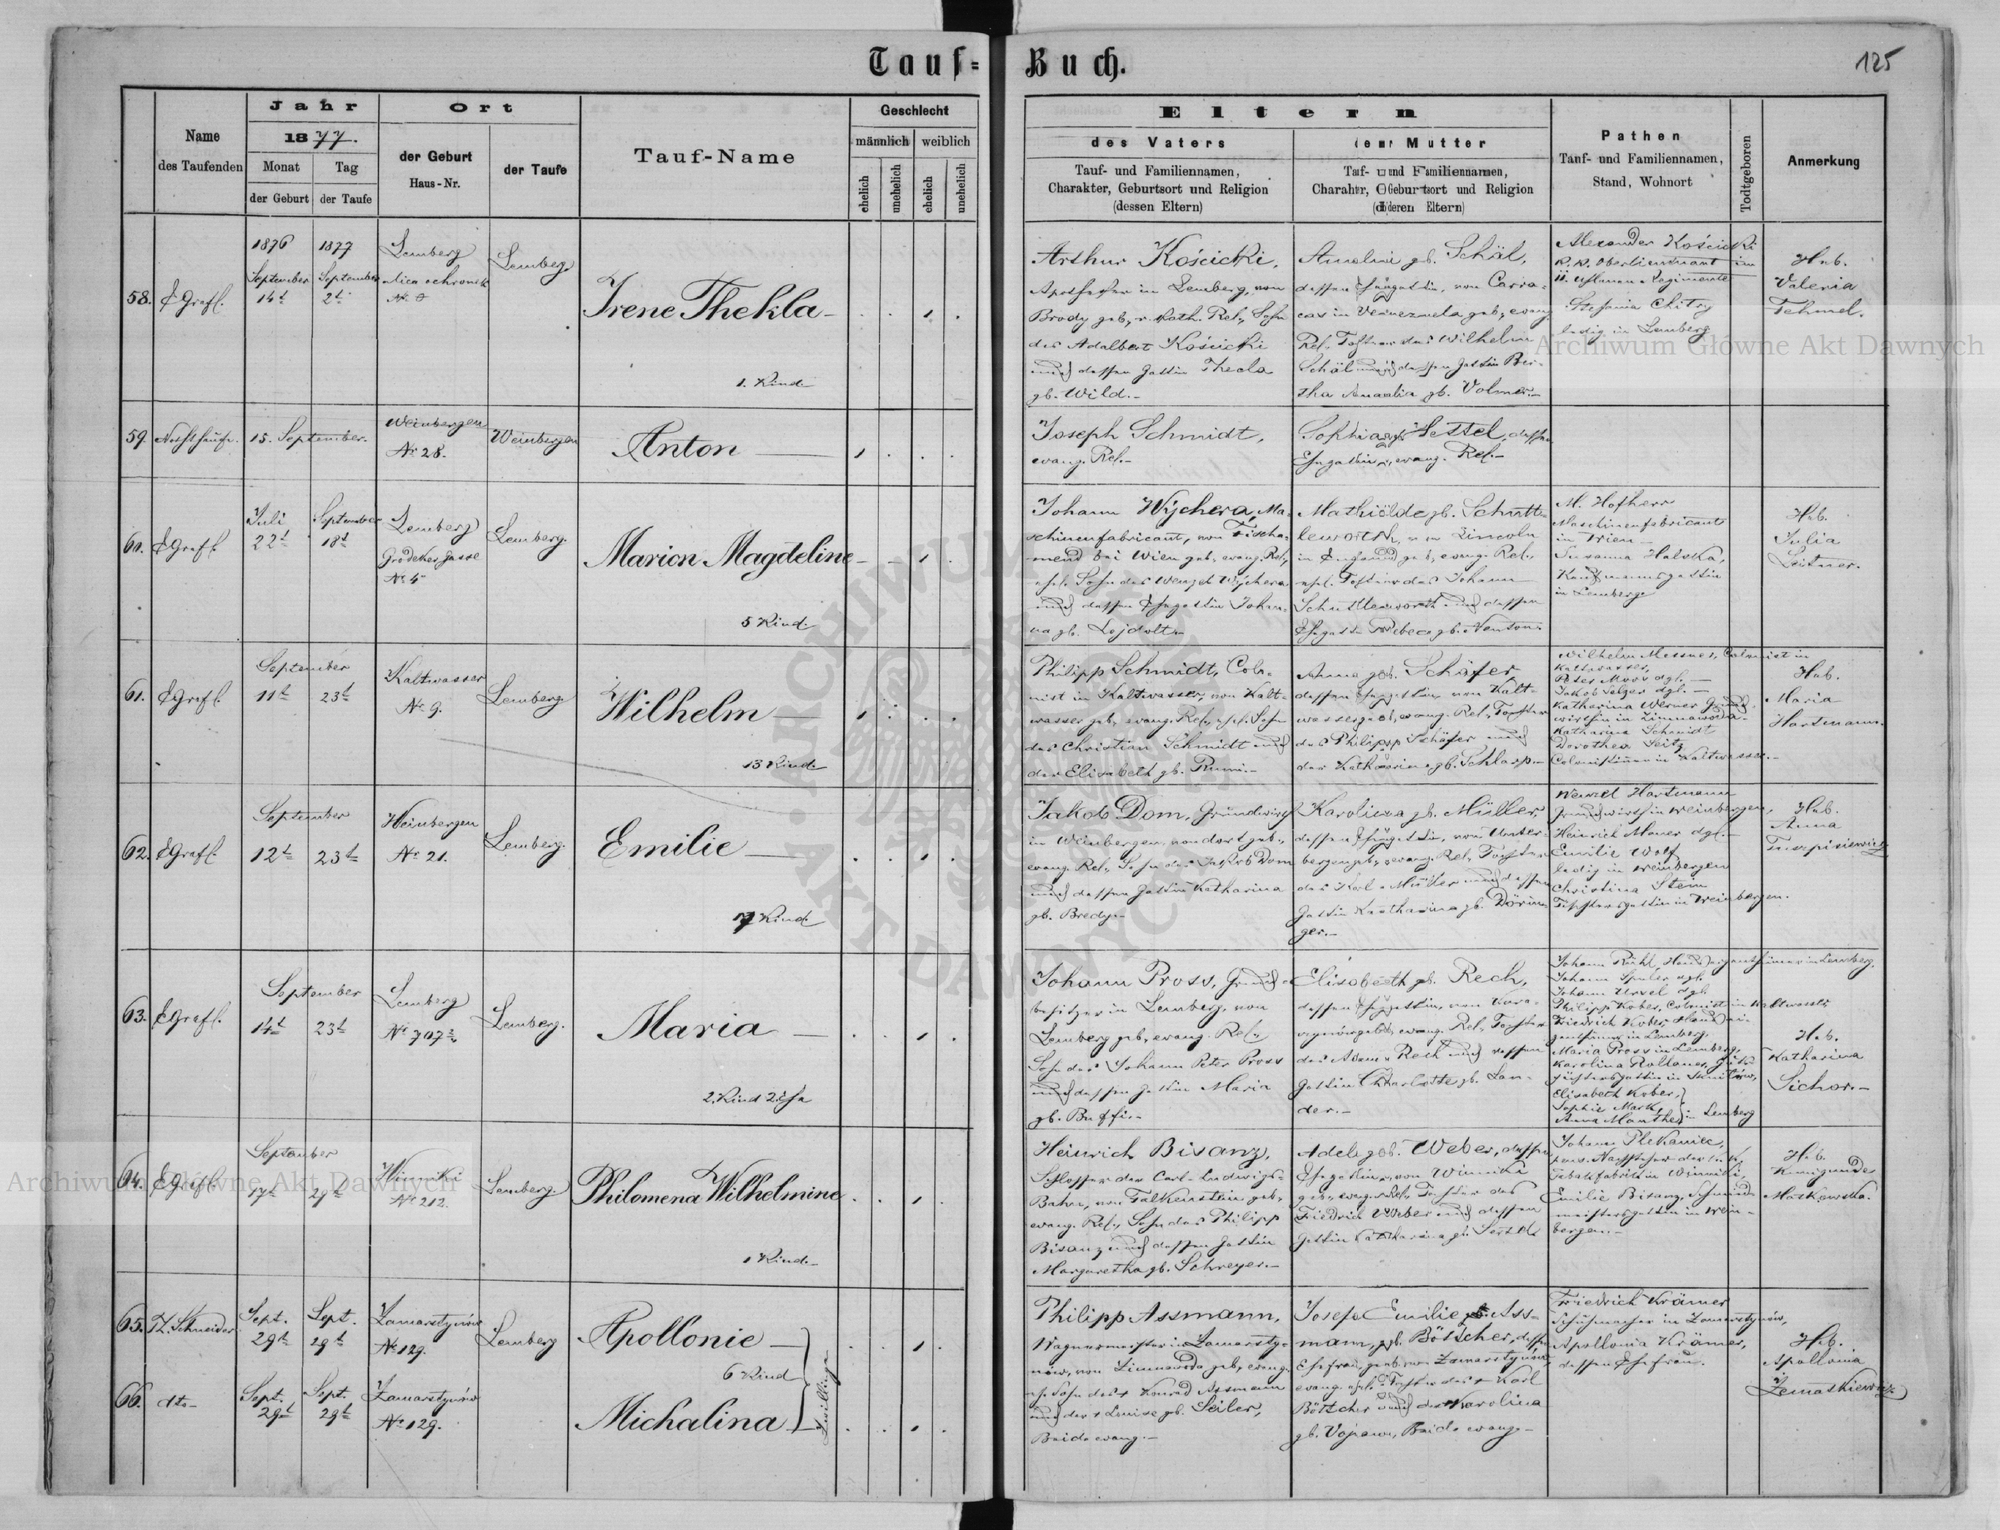 Tauf-Buch.
125
Name des Taufenden
Jahr
1877.
Monat
Tag
der Geburt
der Taufe
Ort
der Geburt
Haus-Nr.
der Taufe
Tauf-Name
Geschlecht
männlich
weiblich
ehelich
unehelich
ehelich
unehelich
Eltern
des Vaters
Tauf- und Familiennamen,
Charakter, Geburtsort und Religion
(dessen Eltern)
der Mutter
Tauf- und Familiennamen,
Charakter, Geburtsort und Religion
(deren Eltern)
Pathen
Tauf- und Familiennamen,
Stand, Wohnort
Todtgeboren
Anmerkung
58.
1876
September
14t
1877
September
2t
Lemberg
Lemberg
Irene Thekla
1. Kind
Arthur Kościcki,
Apotheker in Lemberg, von
Brody geb, r. kath. Rel., Sohn
des Adalbert Kościcki
und dessen Gattin Thecla
gb. Wild.-
Amalia gb. Schäl,
dessen Ehegattin, von
in Venezuela geb, evang.
Rel. Tochter des Wilhelm
Schäl und dessen Gattin Ber-
tha Amalia gb. Volmer.-
Alexander Kościcki
k. k. Oberlieutenant im
11. Uhlanen Regimente
Stefania Chitry
ledig in Lemberg
Heb.
Valeria
59.
15. September.
Weinbergen
Nr 28.
Weinbergen
Anton
Joseph Schmidt,
evang. Rel.-
Sophia gb. dessen
Ehegattin, evang. Rel.-
60.
Juli
22t
September
18t
Lemberg
Grodeker Gasse
Nr 4
Lemberg.
Marion Magdeline
5 Kind.
Johann Wychera, Ma-
schinenfabricant, von Fischa-
mend bei Wien geb, evang. Rel.,
ehl. Sohn des Wenzel Wychera
und dessen Ehegattin Johan-
na gb.
Mathilde gb. Schutt-
leworth, von Lincoln
in England geb, evang. Rel.,
ehl. Tochter des Johann
Schuttleworth und dessen
Ehegattin Rebeca gb. Newton.
M. Hofherr
Maschinenfabricant
in Wien
Susanna
Kaufmannsgattin
in Lemberg
Heb.
Julia
Leitner.
61.
September
11t
23t
Kaltwasser
Nr 9.
Lemberg
Wilhelm
13 Kind
Philipp Schmidt, Colo-
nist in Kaltwasser, von Kalt-
wasser geb, evang. Rel., ehl. Sohn
des Christian Schmidt und
der Elisabeth gb.
Anna gb. Schäfer,
dessen Ehegattin, von Kalt-
wasser geb, evang. Rel., Tochter
des Philipp Schäfer und
der Katharina gb. Schlarp.
Wilhelm Messner, Colonist in
Kaltwasser,
Peter Moos dgl.
Jakob dgl.
Katharina Werner Grund-
wirthin in Zimnawoda.
Katharina Schmidt
Dorothea Seitz
Colonistinnen in Kaltwasser.
Heb.
Maria
Hartmann.
62.
September
12t
23t
Weinbergen
Nr 21.
Lemberg.
Emilie
7 Kind
Jakob Dom, Grundwirth
in Weinbergen, von dort geb.,
evang. Rel., Sohn des Jakob Dom
und dessen Gattin Katharina
gb. Bredy.
Karolina gb. Müller,
dessen Ehegattin, von Unter-
bergen geb, evang. Rel., Tochter
des Karl Müller und dessen
Gattin Katharina gb. Dörin-
ger.-
Wenzel Hartmann
Grundwirth in Weinbergen,
Heinrich Mauer dgl.
Emilie Wolf
ledig in Weinbergen
Christina Stein
Tischlersgattin in Weinbergen.
Heb.
Anna
63.
September
14t
23t
Lemberg
Nr 707 2/4
Lemberg.
Maria
2. Kind 2. Ehe
Johann Pross, Grund-
besitzer in Lemberg, von
Lemberg geb, evang. Rel.,
Sohn des Johann Peter Pross
und dessen Gattin Maria
gb. Buffi.-
Elisabeth gb. Rech,
dessen Ehegattin, von
geb, evang. Rel., Tochter
des Adam Rech und dessen
Gattin Charlotte gb. Lan-
der.-
Johann Rühl, Hauseigenthümer in Lemberg,
Johann dgl.
Johann dgl.
Philipp Kober, Colonist in Kaltwasser
Friedrich Kober, Hausei-
genthümer in Lemberg.
Maria Pross in Lemberg,
Karolina
Elisabeth Kober,
Sophie Mark,
Anna Manthe } in Lemberg
Heb.
Katharina
Sichar.
64.
September
17t
29t
Winniki
Nr 212.
Lemberg
Philomena Wilhelmine
1 Kind.
Heinrich Bisanz,
Schlosser der Carl-Ludwigs-
Bahn, von Falkenstein geb,
evang. Rel., Sohn des Philipp
Bisanz und dessen Gattin
Margaretha gb. Schreyer.-
Adele gb. Weber, dessen
Ehegattin, von Winniki
geb., evang. Rel., Tochter des
Friedrich Weber und dessen
Gattin Katharina gb.
Johann Plekaniec,
Tabakfabrik in Winniki,
Emilie Bisanz, Schmied-
meistersgattin in Wein-
bergen.-
Heb.
Kunigunde
Matkowska.
65.
Th. Schneider
Sept.
29t
Sept.
29t
Zamarstynów
Nr 129.
Lemberg
Apollonie
6 Kind
Zwillinge
Philipp Assmann,
Wagnermeister in Zamarsty-
nów, von Zimnawoda geb, evang.
ehl. Sohn des + Konrad Assmann
und der + Louise gb. Seiler,
Beide evang.-
Josefa Emilie Ass-
mann, gb. Böttcher, dessen
Ehefrau, geb. von Zamarstynów,
evang. ehl. Tochter des + Karl
Böttcher und der Karolina
gb. Beide evang.-
Friedrich Krämer
Schuhmacher in Zamarstynów,
Apollonia Krämer,
dessen Ehefrau.
Heb.
Apollonia
66.
dto
Sept.
29t
Sept.
29t
Zamarstynów
Nr 129.
Michalina
Archiwum Główne Akt Dawnych
Archiwum Główne Akt Dawnych
ARCHIWUM
AKT DAWNYCH